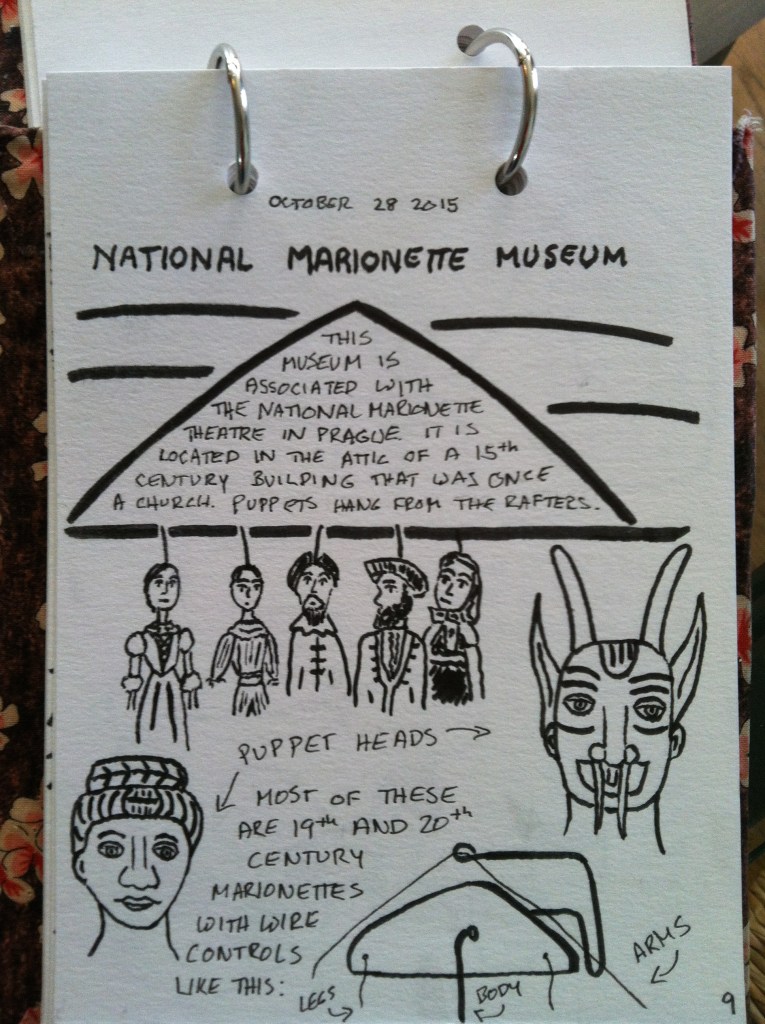 OCTOBER 28 2015
NATIONAL MARIONETTE MUSEUM
THIS
MUSEUM IS
ASSOCIATED WITH
THE NATIONAL MARIONETTE
THEATRE IN PRAGUE. IT IS
LOCATED IN THE ATTIC OF A 15th
CENTURY BUILDING THAT WAS ONCE
A CHURCH. PUPPETS HANG FROM THE RAFTERS.
PUPPET HEADS →
MOST OF THESE
ARE 19th AND 20th
CENTURY
MARIONETTES
WITH WIRE
CONTROLS
LIKE THIS:
LEGS
BODY
ARMS
9